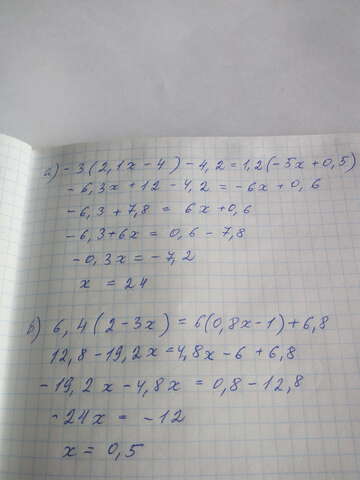 а) -3(2,1x-4)-4,2=1,2(-5x+0,5)
-6,3x+12-4,2=-6x+0,6
-6,3+7,8= 6x+0,6
-6,3+6x= 0,6-7,8
-0,3x=-7,2
x = 24
б) 6,4(2-3x)=6(0,8x-1)+6,8
12,8-19,2x=4,8x-6+6,8
-19,2x-4,8x=0,8-12,8
-24x= -12
x= 0,5